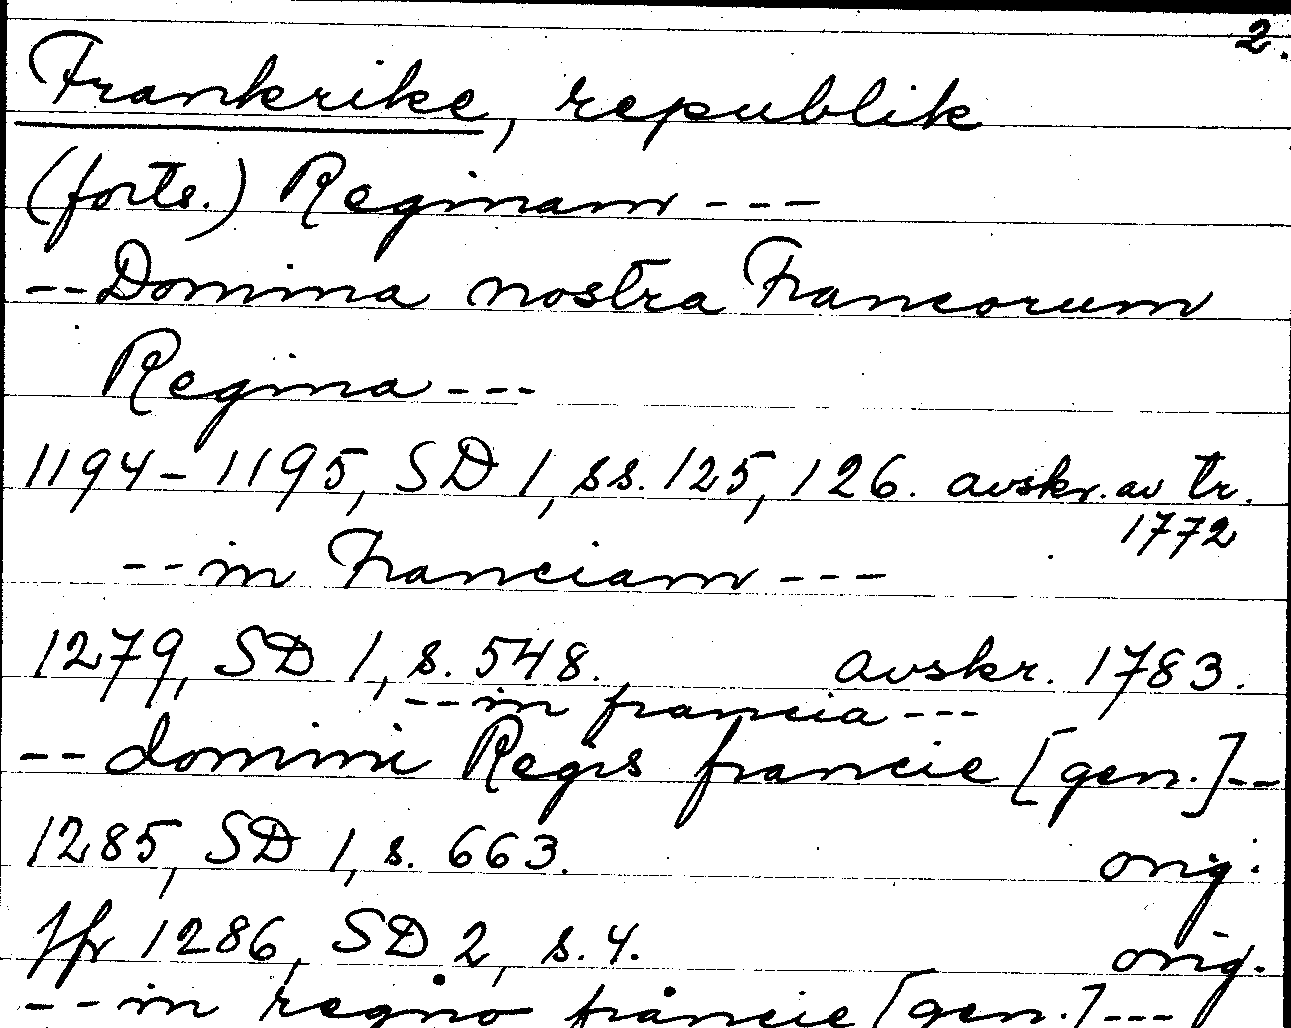 2.
Frankrike, republik
(forts.) Reginam ---
-- Domina nostra Francorum
Regina ---
1194-1195, SD 1, ss. 125, 126. avskr. av tr.
1772
-- in Franciam ---
1279, SD 1, s. 548. avskr. 1783.
-- in francia ---
-- domini Regis francie [gen.] --
1285, SD 1, s. 663. orig.
Jfr 1286, SD 2, s. 4. orig.
-- in regno francie [gen.] ---